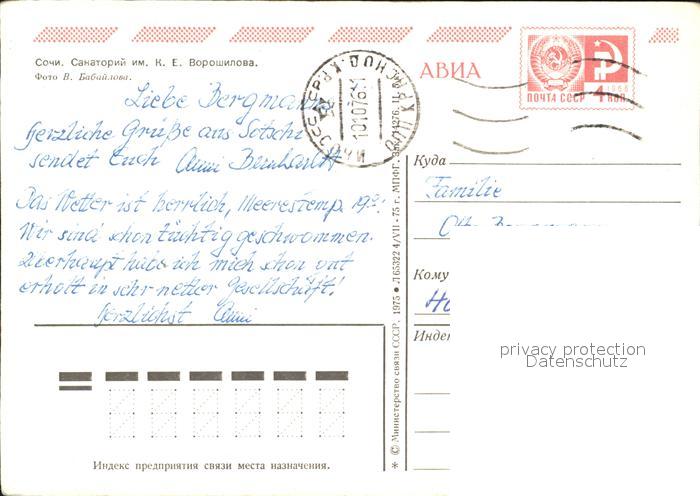 Сочи. Санаторий им. К. Е. Ворошилова.
Фото В. Бабайлова.
АВИА
ПОЧТА СССР 4 КОП
1966
Liebe Bergmanns
herzliche Grüße aus Sotschi
sendet Euch Anni Bernhardt
Das Wetter ist herrlich, Meerestemp. 19°!
Wir sind schon tüchtig geschwommen.
Überhaupt habe ich mich schon gut
erholt in sehr netter Gesellschaft!
Herzlichst Anni
Куда
Familie
Кому
Индекс предприятия связи места назначения.
* © Министерство связи СССР, 1975 • Л 65322 4/VII - 75 г. МПФГ.
privacy protection
Datenschutz